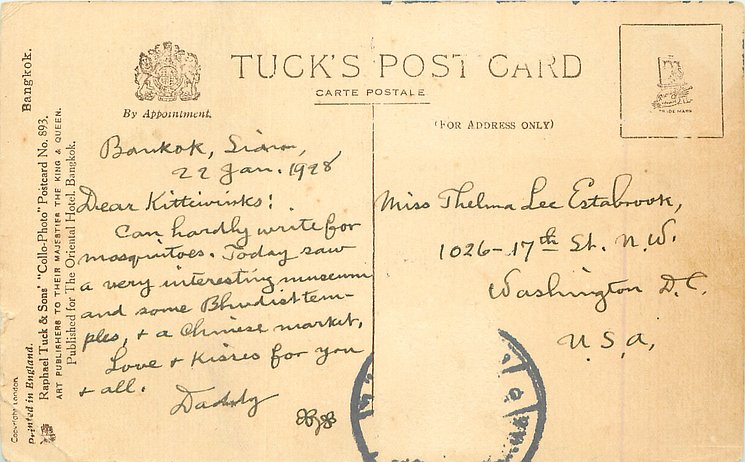 TUCK'S POST CARD
CARTE POSTALE
By Appointment.
(FOR ADDRESS ONLY)
TRADE MARK
Bankok, Siam,
22 Jan. 1928
Dear Kittiwinks:
Can hardly write for
mosquitoes. Today saw
a very interesting museum
and some Bhudist tem-
ples, + a Chinese market.
Love + Kisses for you
+ all.
Daddy
Miss Thelma Lee Estabrook,
1026-17th St. N.W.
Washington D.C.
U.S.A.
Bangkok.
Raphael Tuck & Sons' "Collo-Photo" Postcard No. 893.
ART PUBLISHERS TO THEIR MAJESTIES THE KING & QUEEN.
Published for The Oriental Hotel, Bangkok.
Copyright London.
Printed in England.